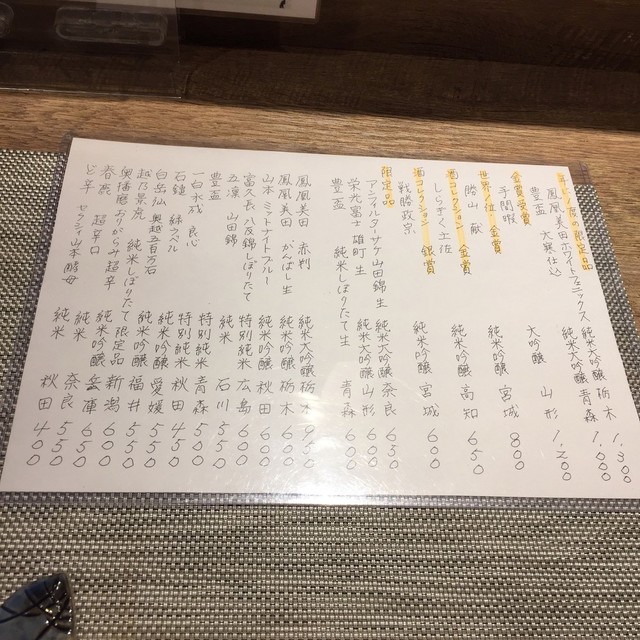 鳳凰美田ホワイトフェニックス 純米大吟醸 栃木 1,300
豊盃 大寒仕込 純米大吟醸 青森 1,000
金賞受賞
手間暇 大吟醸 山形 1,200
世界一位 金賞
勝山 献 純米吟醸 宮城 800
酒コレクション 金賞
しらぎく土佐 純米吟醸 高知 650
酒コレクション 銀賞
戦勝政宗 純米吟醸 宮城 600
限定品
アンフィルター・サケ 山田錦 生 純米大吟醸 奈良 650
栄光富士 雄町 生 純米吟醸 山形 600
豊盃 純米しぼりたて生 青森 600
鳳凰美田 赤判 純米大吟醸 栃木 950
鳳凰美田 がんばし生 純米吟醸 栃木 600
山本 ミッドナイトブルー 純米吟醸 秋田 600
富久長 八反錦しぼりたて 特別純米 広島 600
五凛 山田錦 純米 石川 550
豊盃 特別純米 青森 550
一白水成 良心 特別純米 秋田 450
石鎚 緑ラベル 純米吟醸 愛媛 550
白岳仙 奥越五百万石 純米吟醸 福井 550
越乃景虎 純米しぼりたて 限定品 新潟 600
奥播磨 おりがらみ超辛 純米吟醸 兵庫 650
春鹿 超辛口 純米 奈良 550
ど辛 セクシー山本酵母 純米 秋田 400